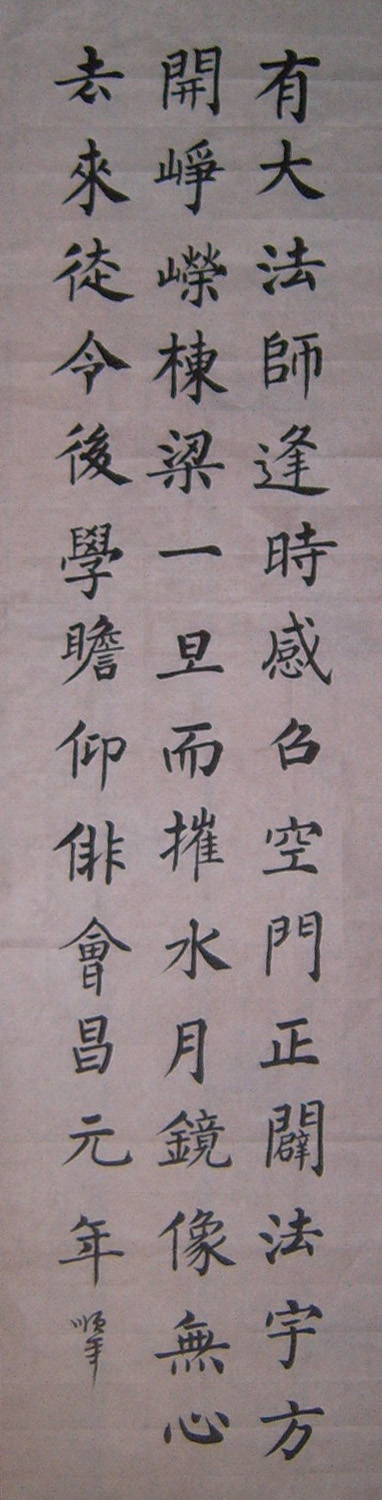 有大法師逢時感召空門正闢法宇方
開崢嶸棟梁一旦而摧水月鏡像無心
去來徒令後學瞻仰俳會昌元年